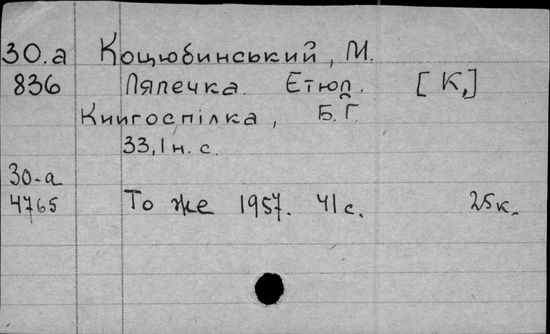 30.а Коцюбинський, М.
836 Лялечка. Етюд. [К,]
Книгоспілка, Б.Г.
33,1 н. с.
30-а
4765 То же 1957. 41 с. 25к.